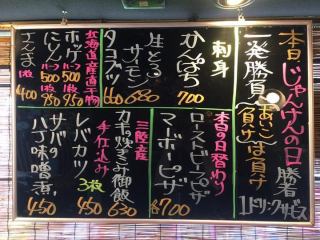 本日じゃんけんの日 勝者
一発勝負(あいこは負け)
1ドリンクサービス
刺身
かんぱち 700
生とろサーモン 680
タコブツ 600
北海道産直干物
ホッケ ハーフ500 1枚950
にしん ハーフ500 1枚950
さんま 1枚 400
本日の日替わり
ローストビーフピザ
マードーポーピザ
各700
三陸産
カキの炊き込み御飯 630
手仕込み
レバカツ 3枚 450
サバの八丁味噌煮 450